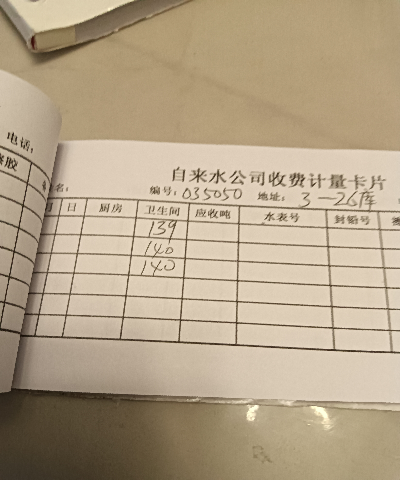 电话:
自来水公司收费计量卡片
名: 编号: 035050 地址: 3-26库
日 厨房 卫生间 应收吨 水表号 封铅号
139
140
140